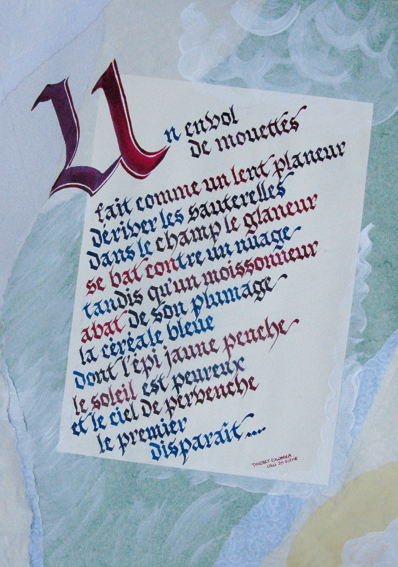 Un envol
de mouettes
fait comme un lent planeur
dériver les sauterelles
dans le champ le glaneur
se bat contre un nuage
tandis qu'un moissonneur
abat de son plumage
la céréale bleue
dont l'épi jaune penche
le soleil est peureux
et le ciel de pervenche
le premier
disparaît....